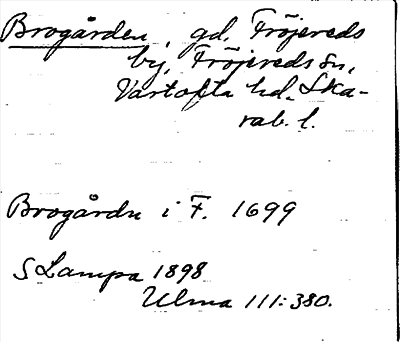 Brogården, gd, Fröjereds
by, Fröjereds sn,
Vartofta hd. Ska-
rab. l.
Brogårdn i F. 1699
S Lampa 1898
Ulma 111:380.